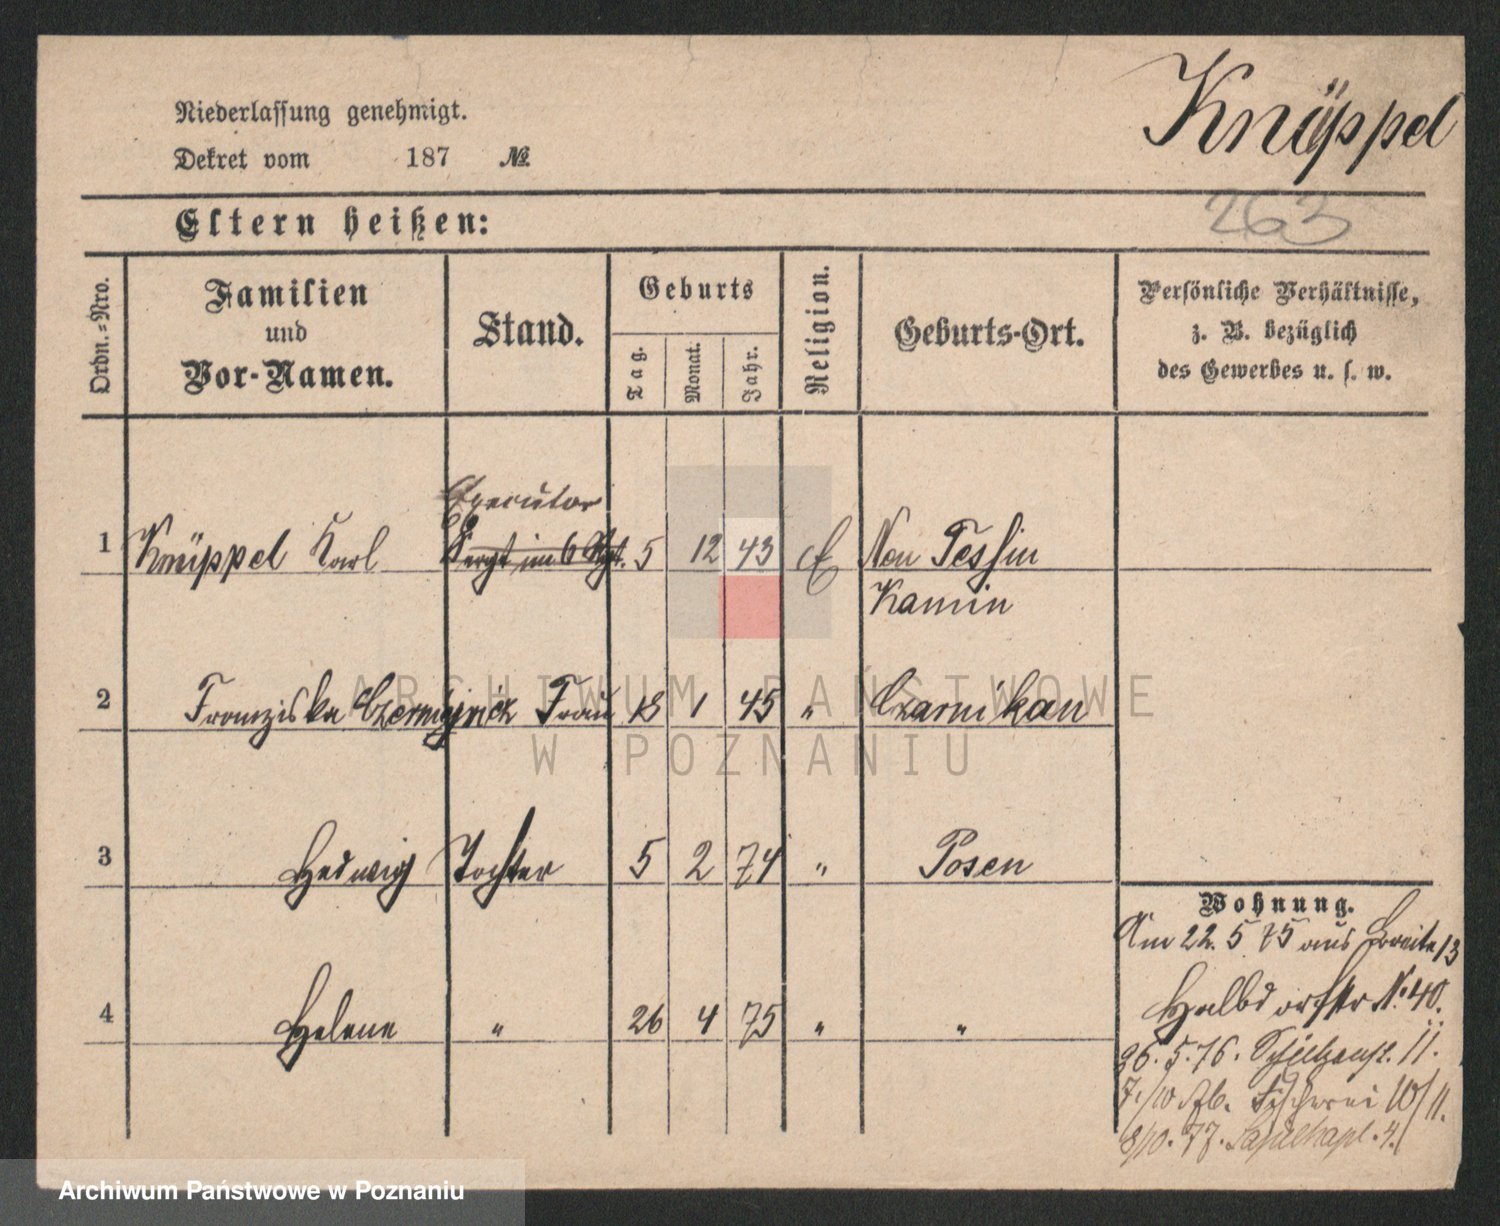 Knüppel
Niederlassung genehmigt.
Dekret vom 187 №
263
Eltern heißen:
Ordn.-Nro. Familien und Vor-Namen. Stand. Geburts Tag. Monat. Jahr. Religion. Geburts-Ort. Persönliche Verhältnisse, z. B. bezüglich des Gewerbes u. s. w.
Executor
1 Knüppel Karl Sergt im 6 Rgt. 5 12 43 E Neu Tessin
Kamin
2 Franziska Frau 18 1 45 " Czarnikau
3 Hedwig Tochter 5 2 74 " Posen
4 Helene " 26 4 75 " "
Wohnung.
Am 22. 5 75 aus Breite 13
Halbdorfstr No. 40.
26. 5. 76. 11.
7./10 Fischerei 10/11.
8/10. 77. 4.
ARCHIWUM PAŃSTWOWE
W POZNANIU
Archiwum Państwowe w Poznaniu